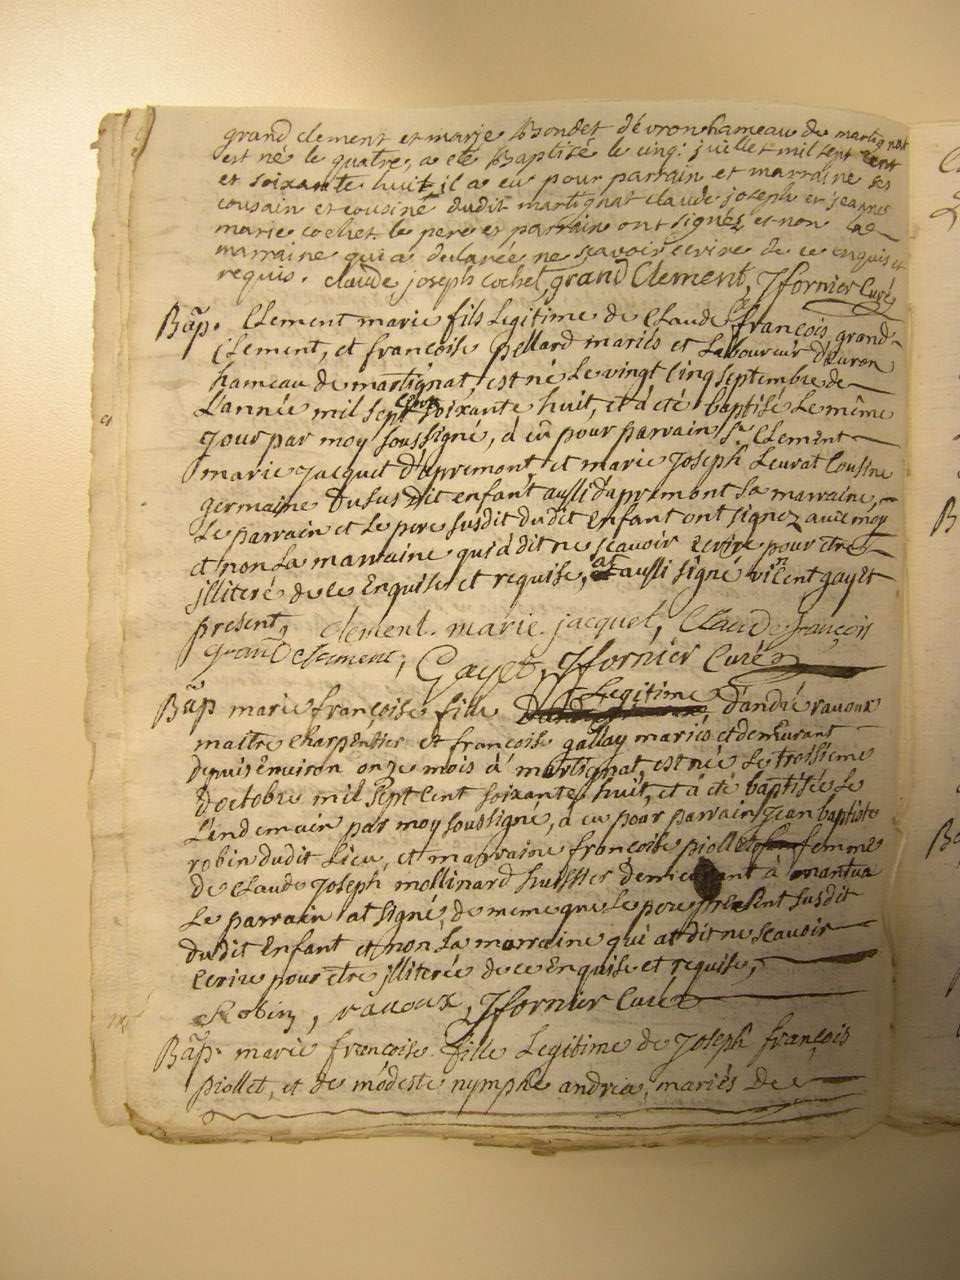 grand clement et marie Bondet d'évron hameau de martignat
est né le quatre, a eté Baptisé le cinq: juillet mil sept cent
et soixante huit, il a eu pour parrain et marraine ses
cousain et cousine dudit martignat claude joseph et jeanne
marie cochet. le pere et parrain ont signéz et non la
marraine qui a declarée ne scavoir ecrire de ce enquis et
requis. claude joseph cochet, grand Clement, Jfornier Curé
Bãp. Clement marie fils Legitime de Claude françois grand
Clement, et françoise pellard mariés et Laboureur d'évron
hameau de martignat, est né Le vingt cinq septembre de
L'année mil sept cent soixante huit, et a été baptisé Le même
jour par moy soussigné, a eû pour parrain sr. Clement
marie jacquet d'apremont et marie Joseph Leurat Cousine
germaine du susdit enfant aussi d'apremont sa marraine,
Le parrain et Le pere susdit dudit Enfant ont signez avec moy
et non La marraine qui à dit ne scavoir Ecrire pour être
jlliteré de ce Enquise et requise, at aussi signé vincent gayet
present, clement. marie. jacquet, Claude françois
grand Clement, Gayet, Jfornier Curé
Bãp marie françoise fille Legitime d'andré ravoux
maitre charpentier et françoise gallay mariés et demeurant
depuis environ onze mois à martignat, est née Le troisieme
d'octobre mil sept cent soixante huit, et a été baptisée Le
Lendemain par moy soussigné, a eu pour parrain Jean baptiste
robin dudit Lieu, et marraine françoise piollet femme
de Claude Joseph mollinard huissier demeurant à nantua
Le parrain at signé, de meme que Le pere present susdit
dudit Enfant et non La marraine qui at dit ne scavoir
Ecrire pour être jlliterée de ce Enquise et requise,
Robin, ravoux, Jfornier Curé
Bãp. marie françoise fille Legitime de Joseph françois
piollet, et de modeste nymphe andréa, mariés de